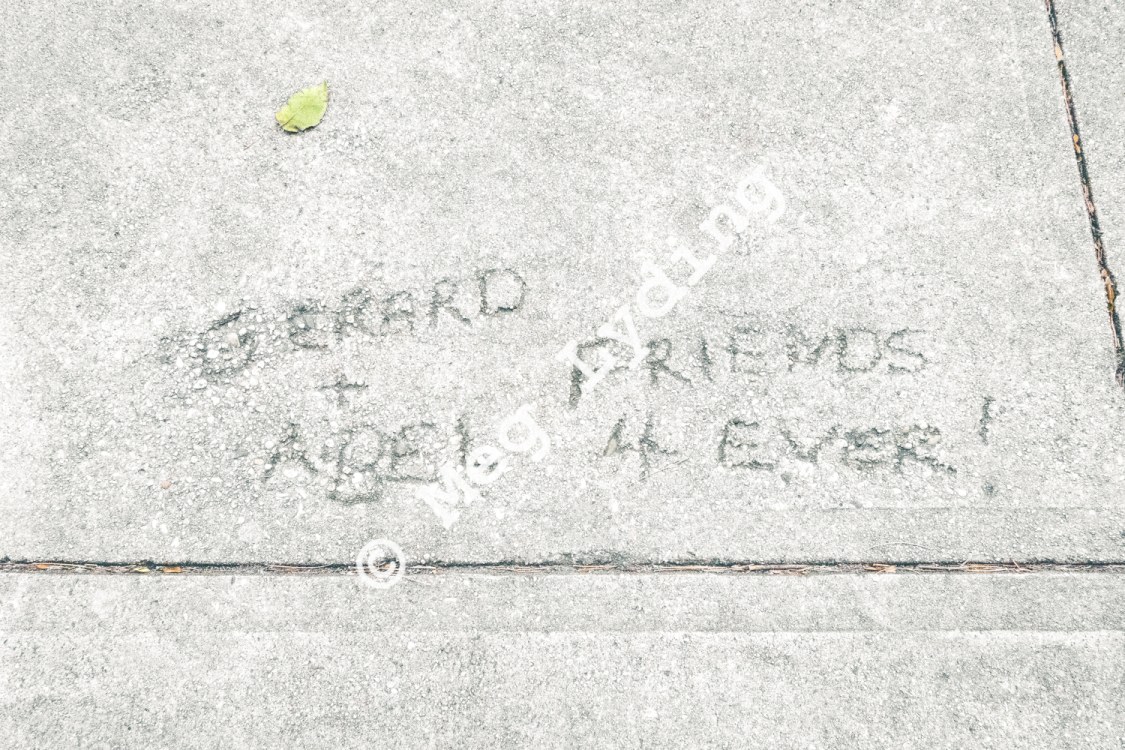 GERARD
+
ADEL
FRIENDS
4 EVER!
© Meg Lyding